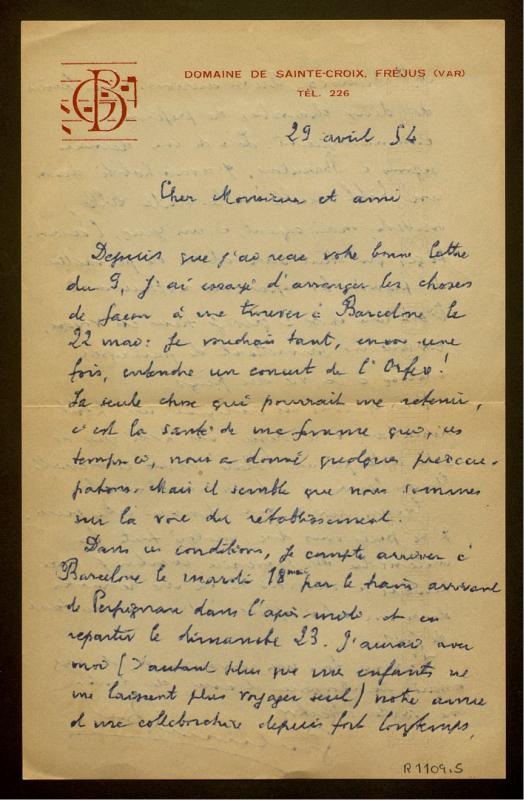 GB
DOMAINE DE SAINTE-CROIX, FRÉJUS (VAR)
TÉL. 226
29 avril 54
Cher Monsieur et ami
Depuis que j'ai reçu votre bonne lettre
du 9, j'ai essayé d'arranger les choses
de façon à me trouver à Barcelone le
22 mai: je voudrais tant, encore une
fois, entendre un concert de l'Orfeo!
La seule chose qui pourrait me retenir,
c'est la santé de ma femme qui, ces
temps-ci, nous a donné quelques préoccu-
pations. Mais il semble que nous sommes
sur la voie du rétablissement.
Dans ces conditions, je compte arriver à
Barcelone le mardi 18 mai par le train arrivant
de Perpignan dans l'après-midi et en
repartir le dimanche 23. J'aurai avec
moi (d'autant plus que mes enfants ne
me laissent plus voyager seul) notre amie
et une collaboratrice depuis fort longtemps,
R 1109.5